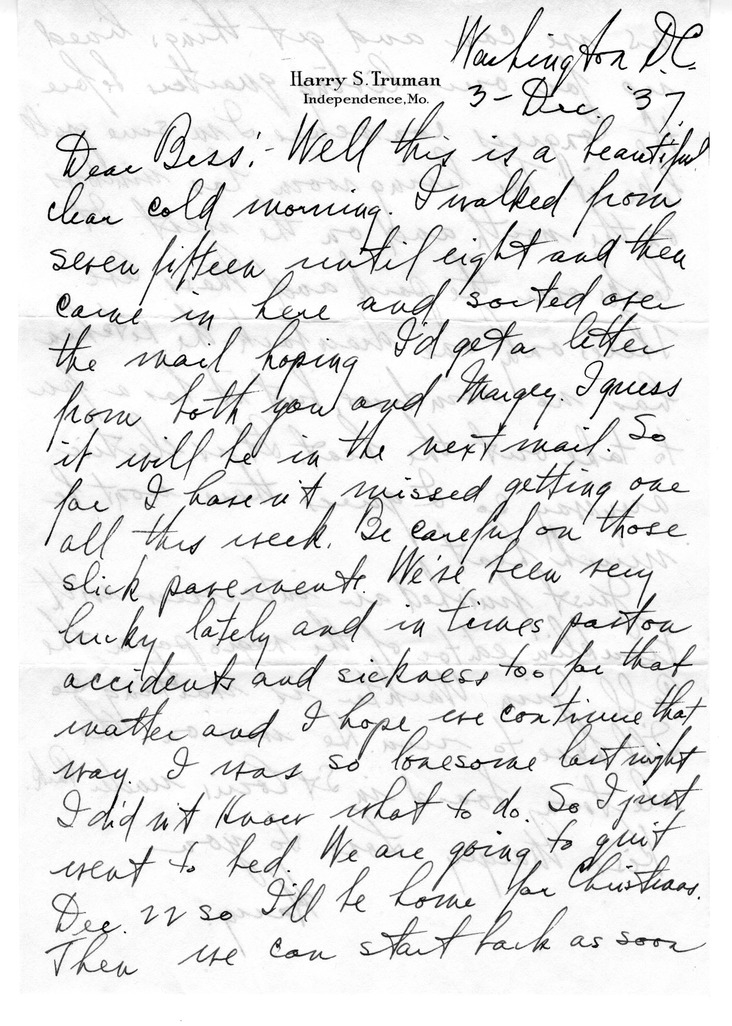 Washington D.C.
Harry S. Truman
Independence, Mo.
3 - Dec. '37
Dear Bess:- Well this is a beautiful
clear cold morning. I walked from
seven fifteen until eight and then
came in here and sorted over
the mail hoping I'd get a letter
from both you and Margey. I guess
it will be in the next mail. So
far I haven't missed getting one
all this week. Be careful on those
slick pavements. We've been very
lucky lately and in times past on
accidents and sickness too for that
matter and I hope we continue that
way. I was so lonesome last night
I didn't know what to do. So I just
went to bed. We are going to quit
Dec. 22 so I'll be home for Christmas.
Then we can start back as soon